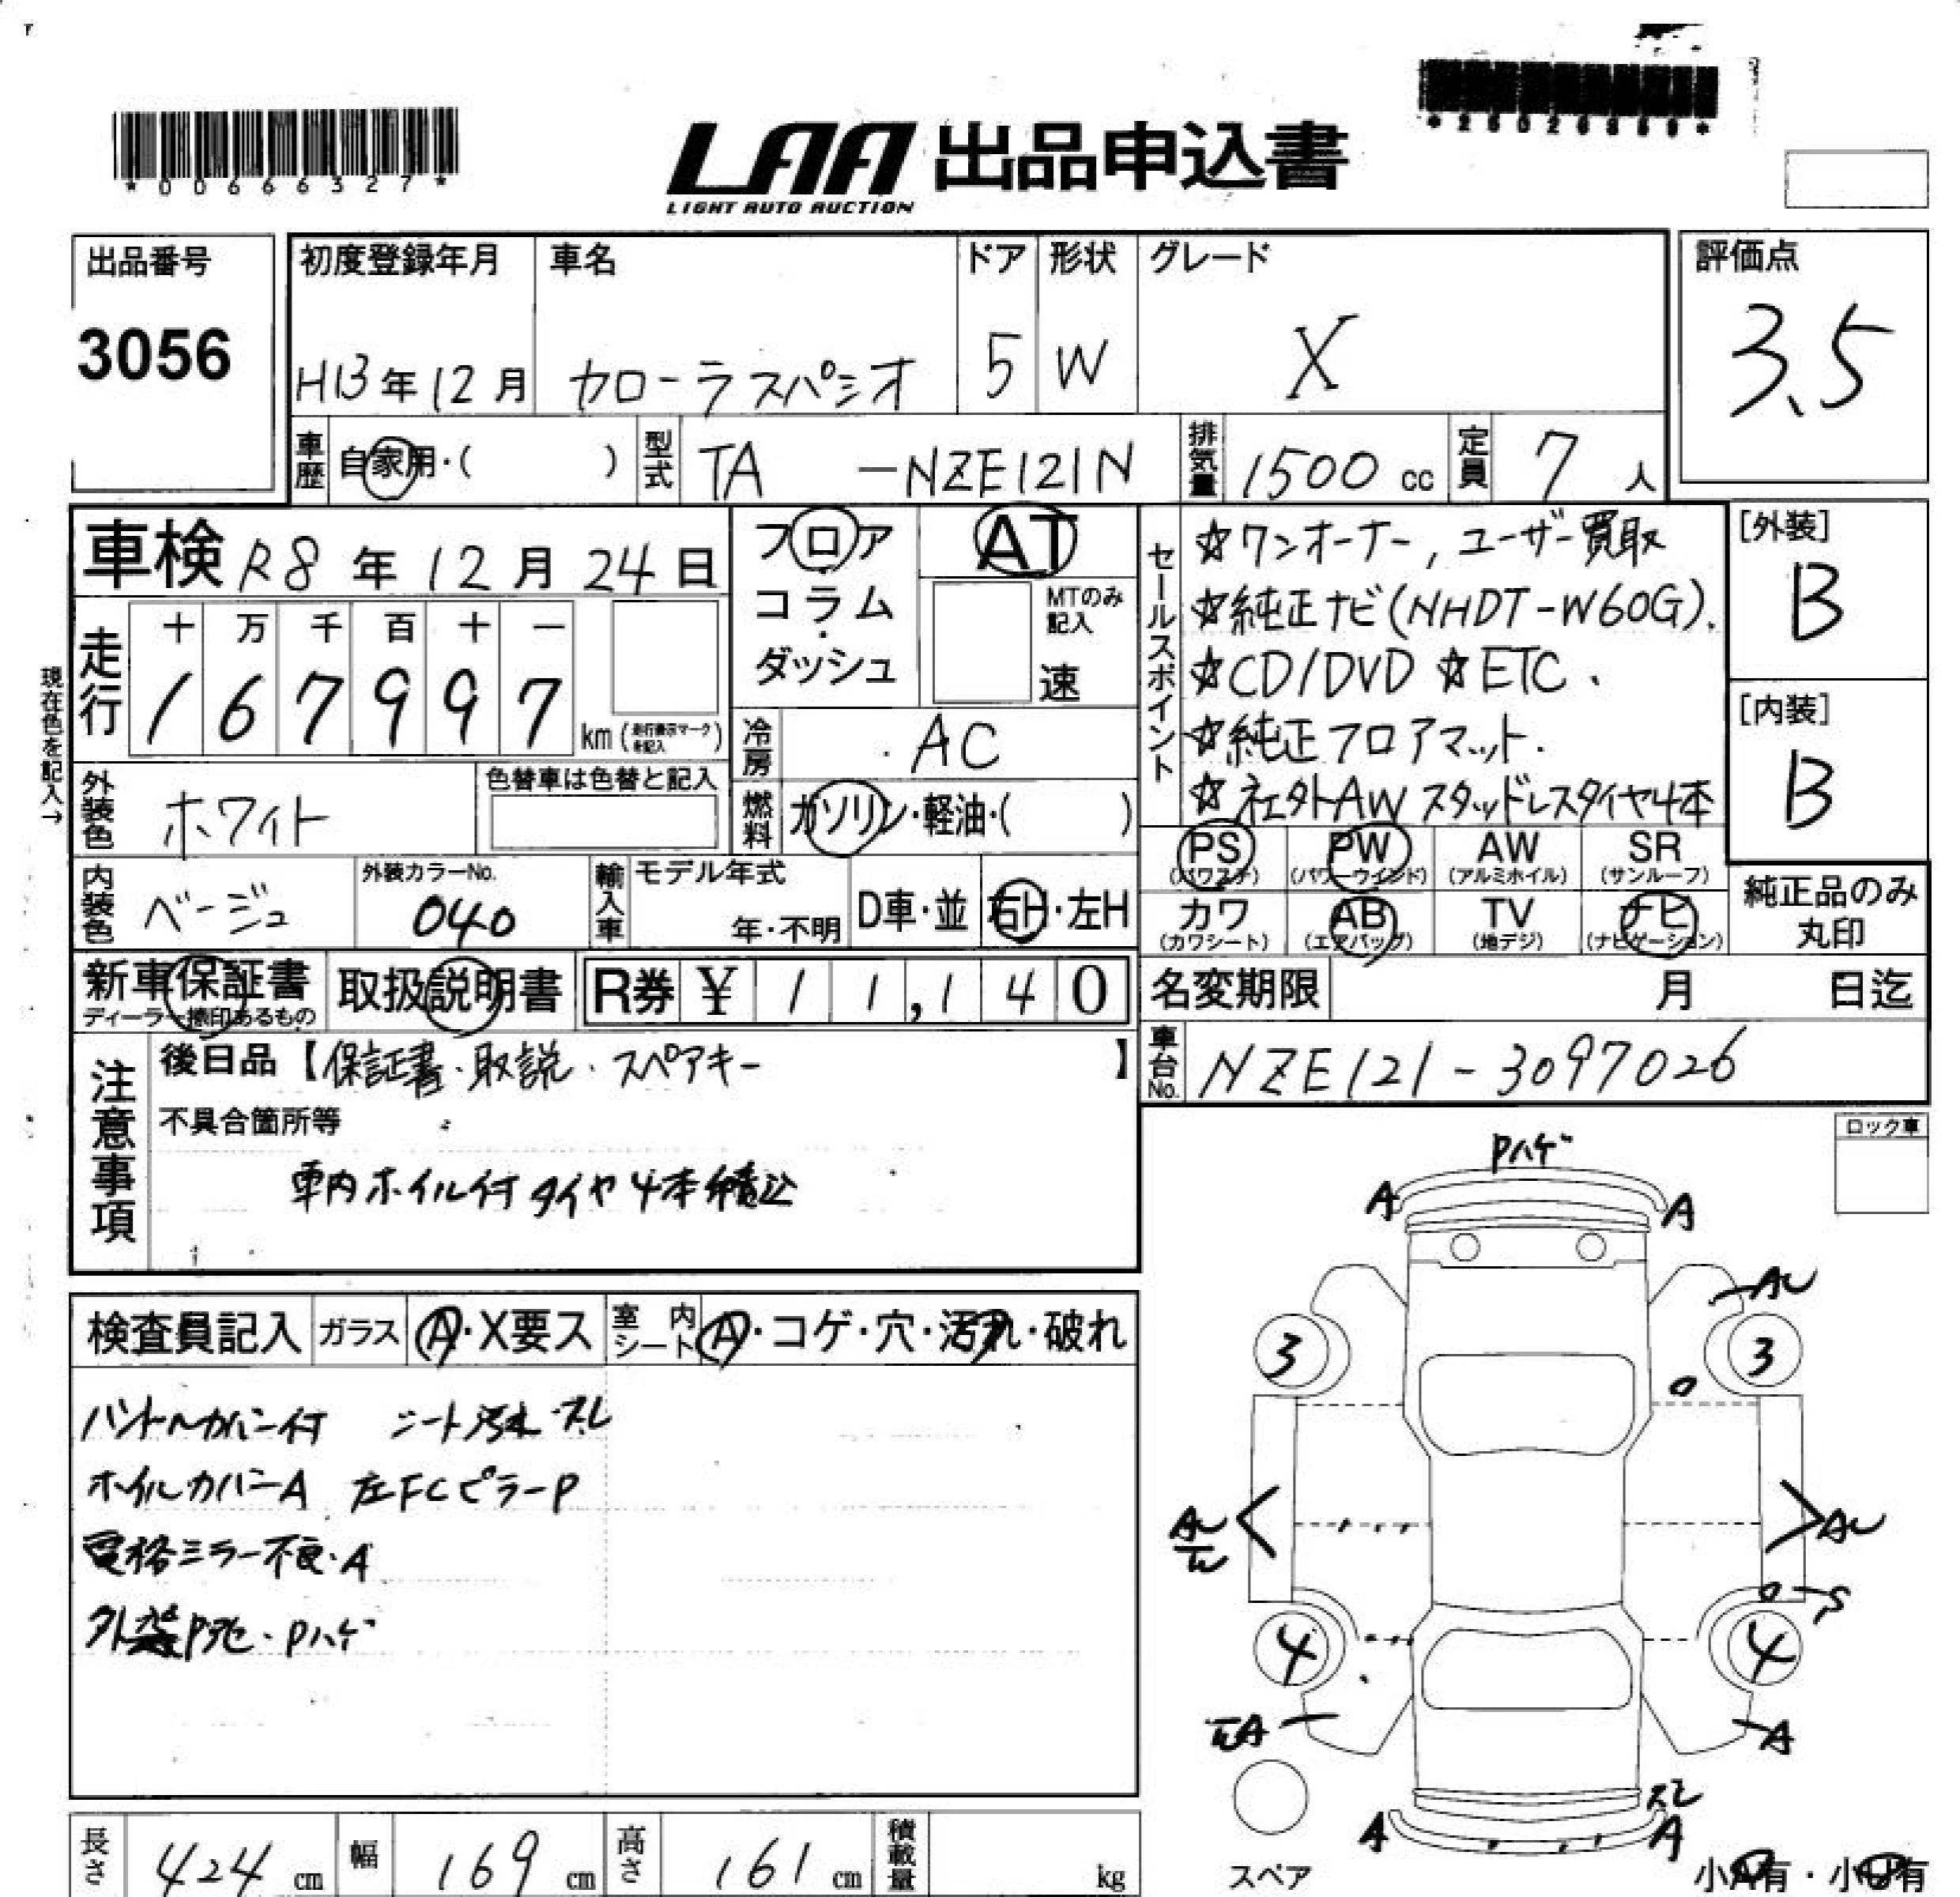 *00666327*
LAA 出品申込書
LIGHT AUTO AUCTION
出品番号
3056
初度登録年月
H13年12月
車名
カローラスパシオ
ドア
5
形状
W
グレード
X
評価点
3.5
車歴 自家用・( )
型式 TA -NZE121N
排気量 1500 cc
定員 7 人
車検 R8 年 12 月 24 日
フロア・コラム・ダッシュ
AT
MTのみ記入
速
セールスポイント
☆ワンオーナー, ユーザー買取
☆純正ナビ(NHDT-W60G).
☆CD/DVD ☆ETC.
☆純正フロアマット.
☆社外AWスタッドレスタイヤ4本
[外装]
B
[内装]
B
現在色を記入→
走行
十 万 千 百 十 一
1 6 7 9 9 7 km (走行表示マークを記入)
冷房 AC
外装色 ホワイト
色替車は色替と記入
燃料 ガソリン・軽油・( )
PS (パワステ) PW (パワーウインド) AW (アルミホイル) SR (サンルーフ)
カワ (カワシート) AB (エアバッグ) TV (地デジ) ナビ (ナビゲーション)
純正品のみ丸印
内装色 ベージュ
外装カラーNo. 040
輸入車 モデル年式 年・不明
D車・並 右H・左H
新車保証書
ディーラー捺印あるもの
取扱説明書
R券 ¥ 11,140
名変期限 月 日迄
車台No. NZE121-3097026
注意事項
後日品【保証書・取説・スペアキー】
不具合箇所等
車内ホイル付タイヤ4本積込
ロック車
検査員記入 ガラス A・X要ス 室内シート A・コゲ・穴・汚れ・破れ
ハンドルカバー付 シート汚れ・スレ
ホイルカバーA 左FCピラーP
電格ミラー不良・A
外装P死・Pハゲ
Pハゲ
A A
AU
3 3
AU
AU
4 4
A
A
スレ
A A
スペア
小A有・小U有
長さ 424 cm
幅 169 cm
高さ 161 cm
積載量 kg